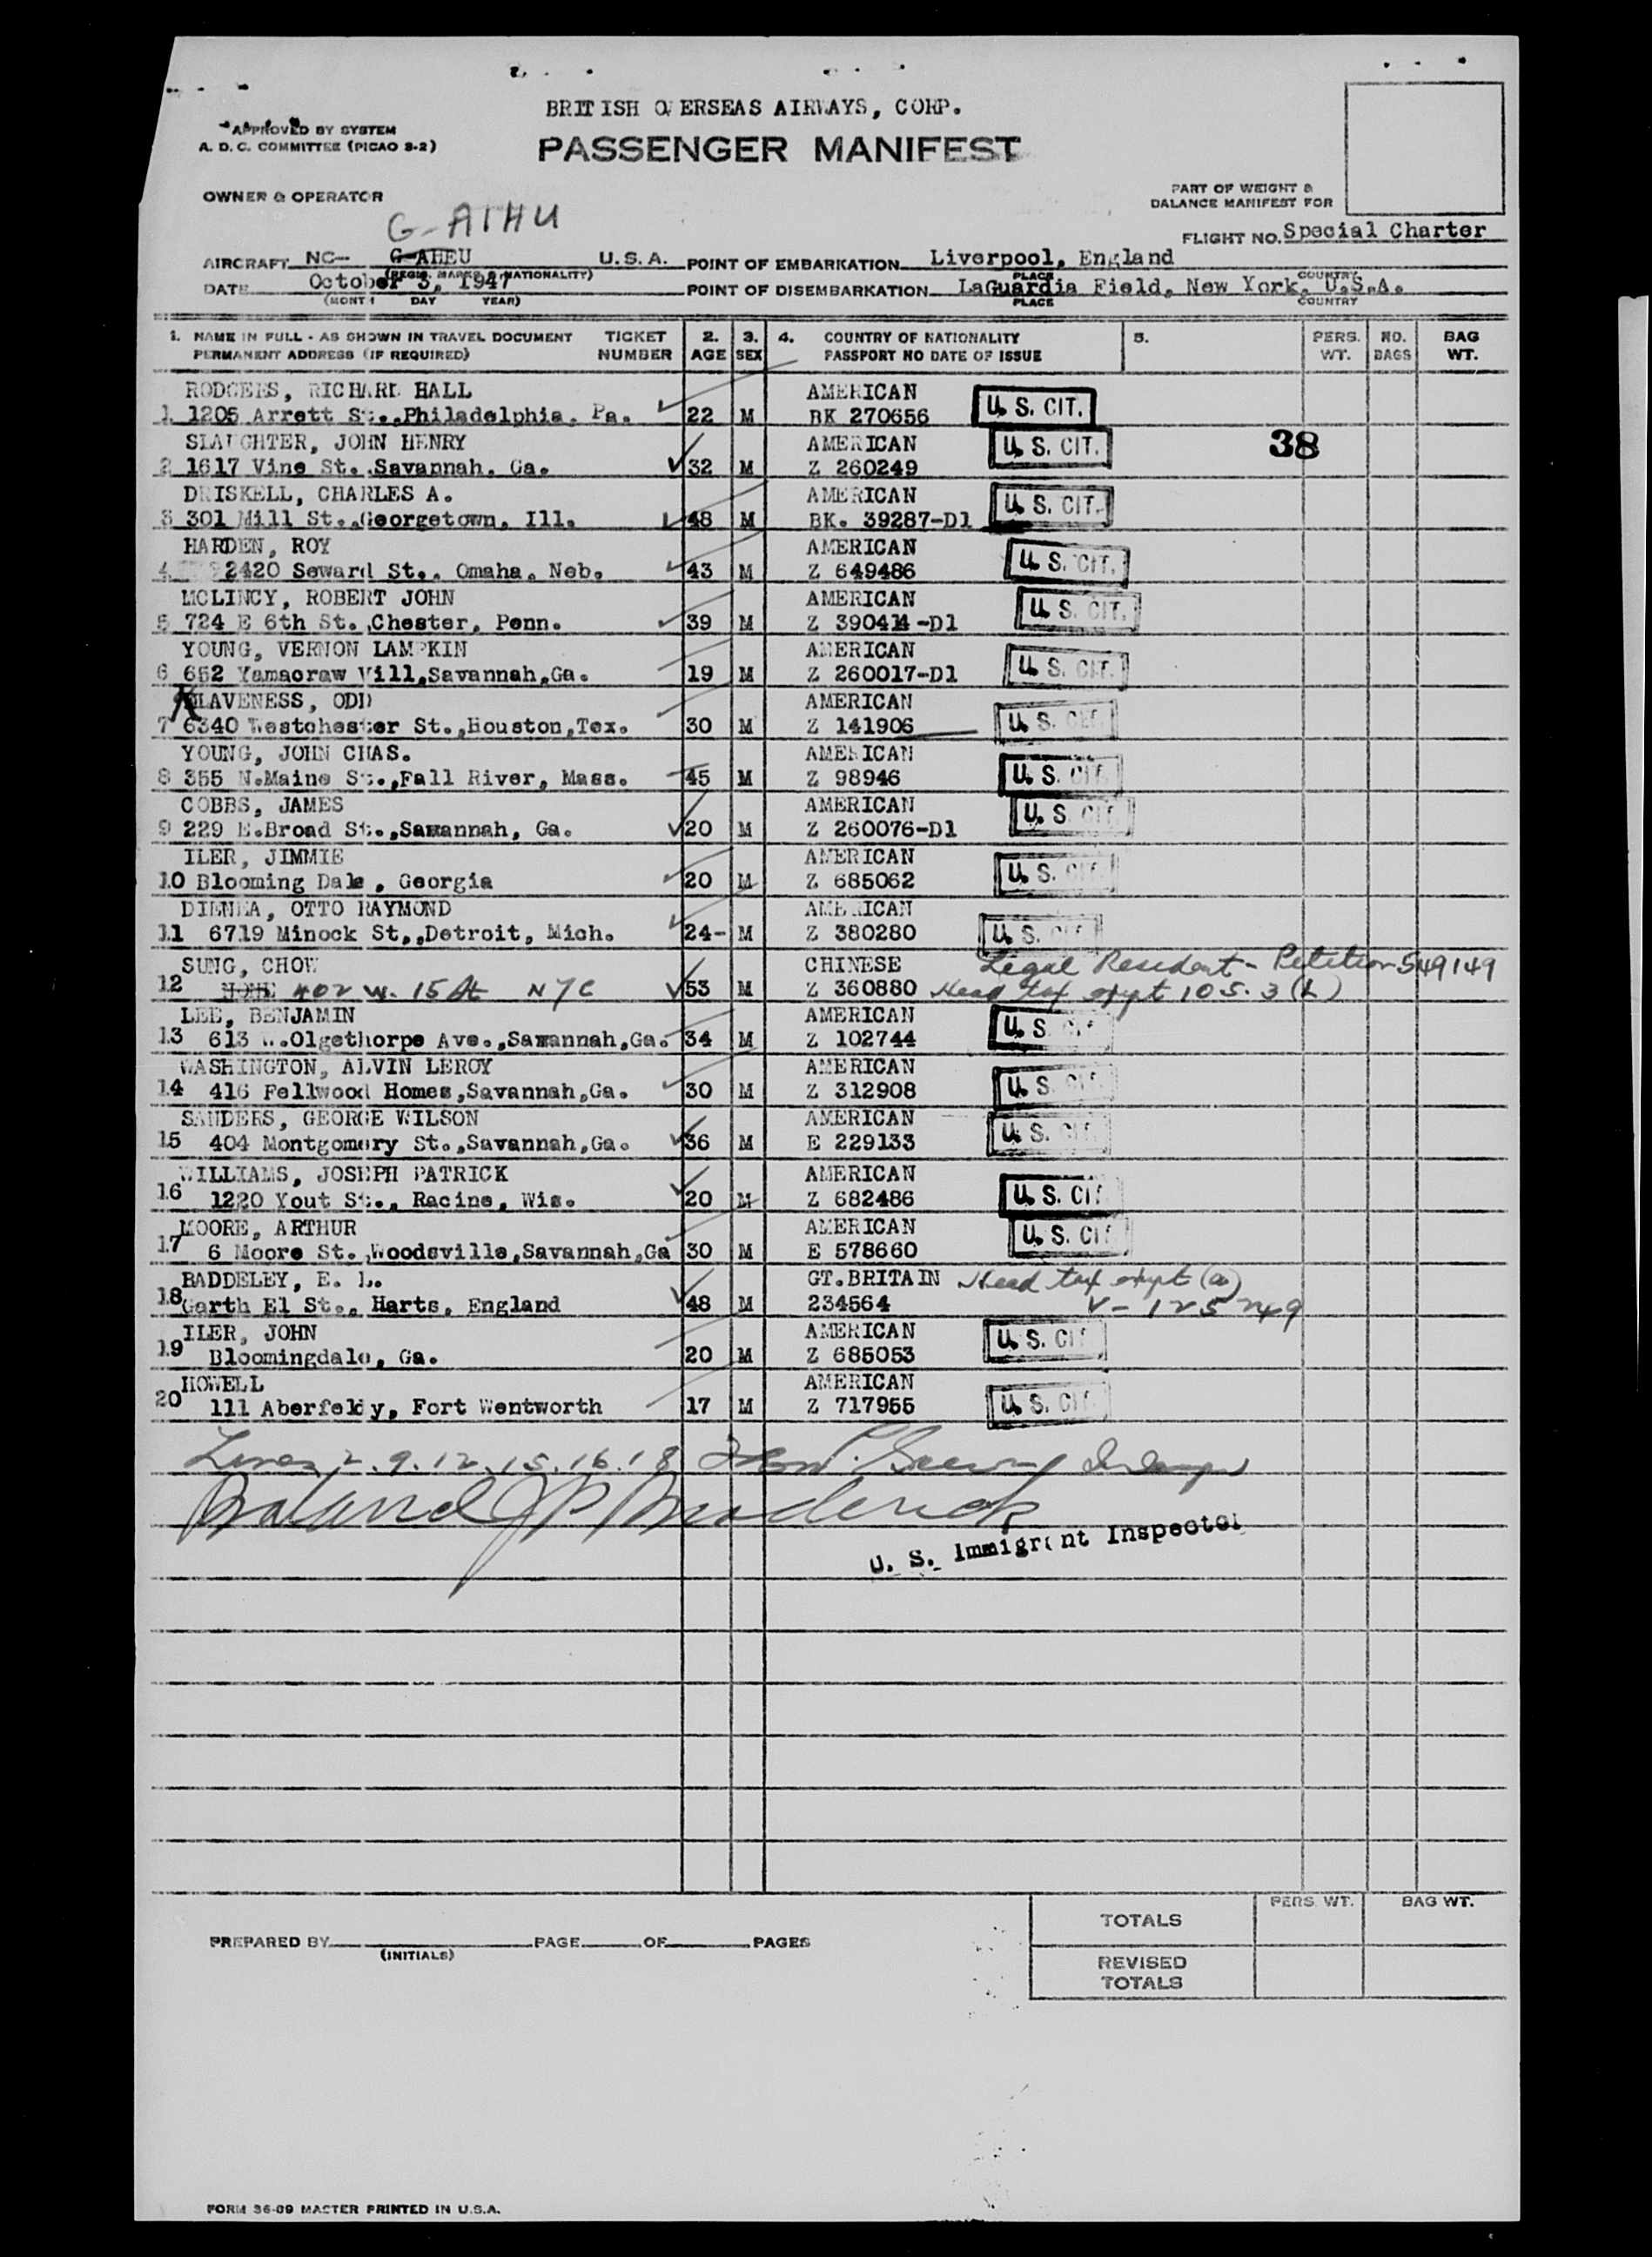 BRITISH OVERSEAS AIRWAYS, CORP.
APPROVED BY SYSTEM
A. D. C. COMMITTEE (PICAO 3-2)
PASSENGER MANIFEST
OWNER & OPERATOR
PART OF WEIGHT &
BALANCE MANIFEST FOR
G-AIHU
FLIGHT NO. Special Charter
AIRCRAFT NC- G-AHEU U.S.A. POINT OF EMBARKATION Liverpool, England
(REGIS. MARKS & NATIONALITY) PLACE COUNTRY
DATE October 3, 1947 POINT OF DISEMBARKATION LaGuardia Field, New York, U.S.A.
(MONTH DAY YEAR) PLACE COUNTRY
1. NAME IN FULL - AS SHOWN IN TRAVEL DOCUMENT TICKET 2. 3. 4. COUNTRY OF NATIONALITY 5. PERS. NO. BAG
PERMANENT ADDRESS (IF REQUIRED) NUMBER AGE SEX PASSPORT NO DATE OF ISSUE WT. BAGS WT.
RODGERS, RICHARD HALL AMERICAN U. S. CIT.
1 1205 Arrett St.,Philadelphia. Pa. 22 M BK 270656
SLAUGHTER, JOHN HENRY AMERICAN U. S. CIT. 38
2 1617 Vine St. Savannah. Ga. 32 M Z 260249
DRISKELL, CHARLES A. AMERICAN U. S. CIT.
3 301 Mill St.,Georgetown, Ill. 48 M BK. 39287-D1
HARDEN, ROY AMERICAN U. S. CIT.
4 2420 Seward St., Omaha. Neb. 43 M Z 649486
MCLINCY, ROBERT JOHN AMERICAN U. S. CIT.
5 724 E 6th St. Chester, Penn. 39 M Z 390414-D1
YOUNG, VERNON LAMPKIN AMERICAN U. S. CIT.
6 652 Yamacraw Vill,Savannah,Ga. 19 M Z 260017-D1
KLAVENESS, ODD AMERICAN
7 6340 Westchester St.,Houston,Tex. 30 M Z 141906 U. S. CIT.
YOUNG, JOHN CHAS. AMERICAN
8 355 N.Maine St.,Fall River, Mass. 45 M Z 98946 U. S. CIT.
COBBS, JAMES AMERICAN U. S. CIT.
9 229 E.Broad St.,Savannah, Ga. 20 M Z 260076-D1
ILER, JIMMIE AMERICAN
10 Blooming Dale, Georgia 20 M Z 685062 U. S. CIT.
OTTO RAYMOND AMERICAN
11 6719 Minock St,,Detroit, Mich. 24- M Z 380280 U. S. CIT.
SUNG, CHOW CHINESE Legal Resident - Petition 549149
12 402 W. 15 St NYC 53 M Z 360880 Head tax expt 10 S. 3 (h)
LEE, BENJAMIN AMERICAN U. S. CIT.
13 613 W.Olgethorpe Ave.,Savannah,Ga. 34 M Z 102744
WASHINGTON, ALVIN LEROY AMERICAN
14 416 Fellwood Homes,Savannah,Ga. 30 M Z 312908 U. S. CIT.
SANDERS, GEORGE WILSON AMERICAN U. S. CIT.
15 404 Montgomery St.,Savannah,Ga. 36 M E 229133
WILLIAMS, JOSEPH PATRICK AMERICAN
16 1220 Yout St., Racine, Wis. 20 M Z 682486 U. S. CIT.
MOORE, ARTHUR AMERICAN U. S. CIT.
17 6 Moore St.,Woodsville,Savannah,Ga 30 M E 578660
BADDELEY, E. L. GT.BRITAIN Head tax expt (a)
18 Garth El St., Harts, England 48 M 234564 V-125249
ILER, JOHN AMERICAN U. S. CIT.
19 Bloomingdale, Ga. 20 M Z 685053
HOWELL AMERICAN
20 111 Aberfeldy, Fort Wentworth 17 M Z 717955 U. S. CIT.
Lines 2.9.12.15.16.18
Roland JP Broderick
U. S. Immigrant Inspector
PREPARED BY PAGE OF PAGES
(INITIALS)
PERS. WT. BAG WT.
TOTALS
REVISED
TOTALS
FORM 36-09 MASTER PRINTED IN U.S.A.